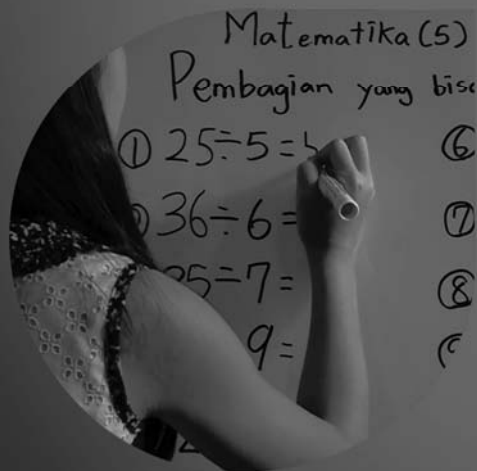 Matematika (5)
Pembagian yang
① 25÷5=
⑥
36÷6=
⑦
÷7=
⑧
9=